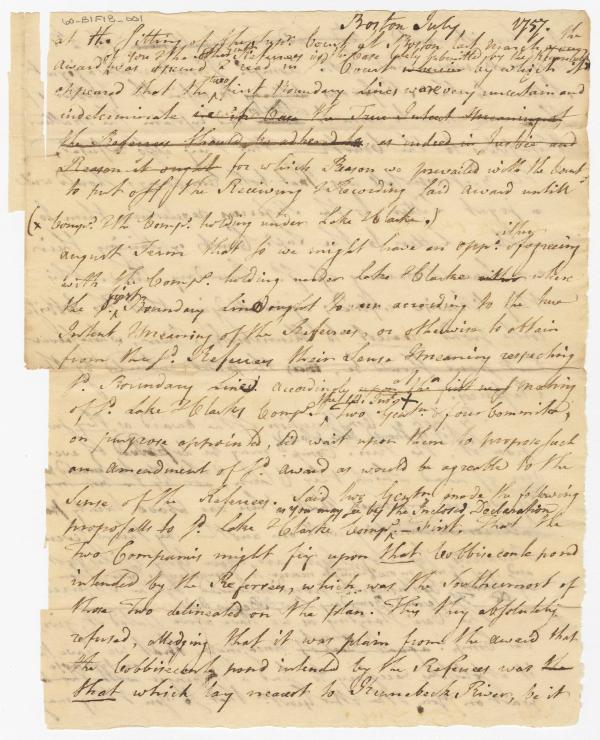 60-B1F18-001
Boston July, 1757.
at the Sitting of the Supr. Court at Boston last March, the
award of you & the other Referees in the Case
was opened & read in Court by which it
appeared that the two first Boundary Lines were very uncertain and
indeterminate in Case the True Intent & meaning of
the Referees should be adhered to, as indeed in Justice and
Reason it ought for which Reason we prevailed with the Court
to put off the Receiving & Recording said award untill
(x Compy. & the Compy. holding under Lake & Clarke.)
august Term that so we might have an oppy. either of agreeing
with the Compy. holding under Lake & Clarke where
the sd. first Boundary Lines ought to run according to the true
Intent & meaning of the Referees, or otherwise to obtain
from the sd. Referees their Sense & meaning respecting
sd. Boundary Lines. accordingly at a meeting
of sd. Lake & Clarks Compy. two Gentn. of our Committee,
on purpose appointed, did wait upon them to propose such
an amendment of sd. award as would be agreable to the
Sense of the Referees. Said two Gentmn. made the following
as you may see by the Inclosd. Declaration
proposalls to sd. Lake & Clarke Compy. First. That the
Two Companies might fix upon that Cobbiseconte pond
intended by the Referees, which was the Southermost of
those Two delineated on the plan. This they absolutely
refused, alledging that it was plain from the award that
the Cobbiseconte pond intended by the Referees was the
that which lay nearest to Kennebeck River, be it